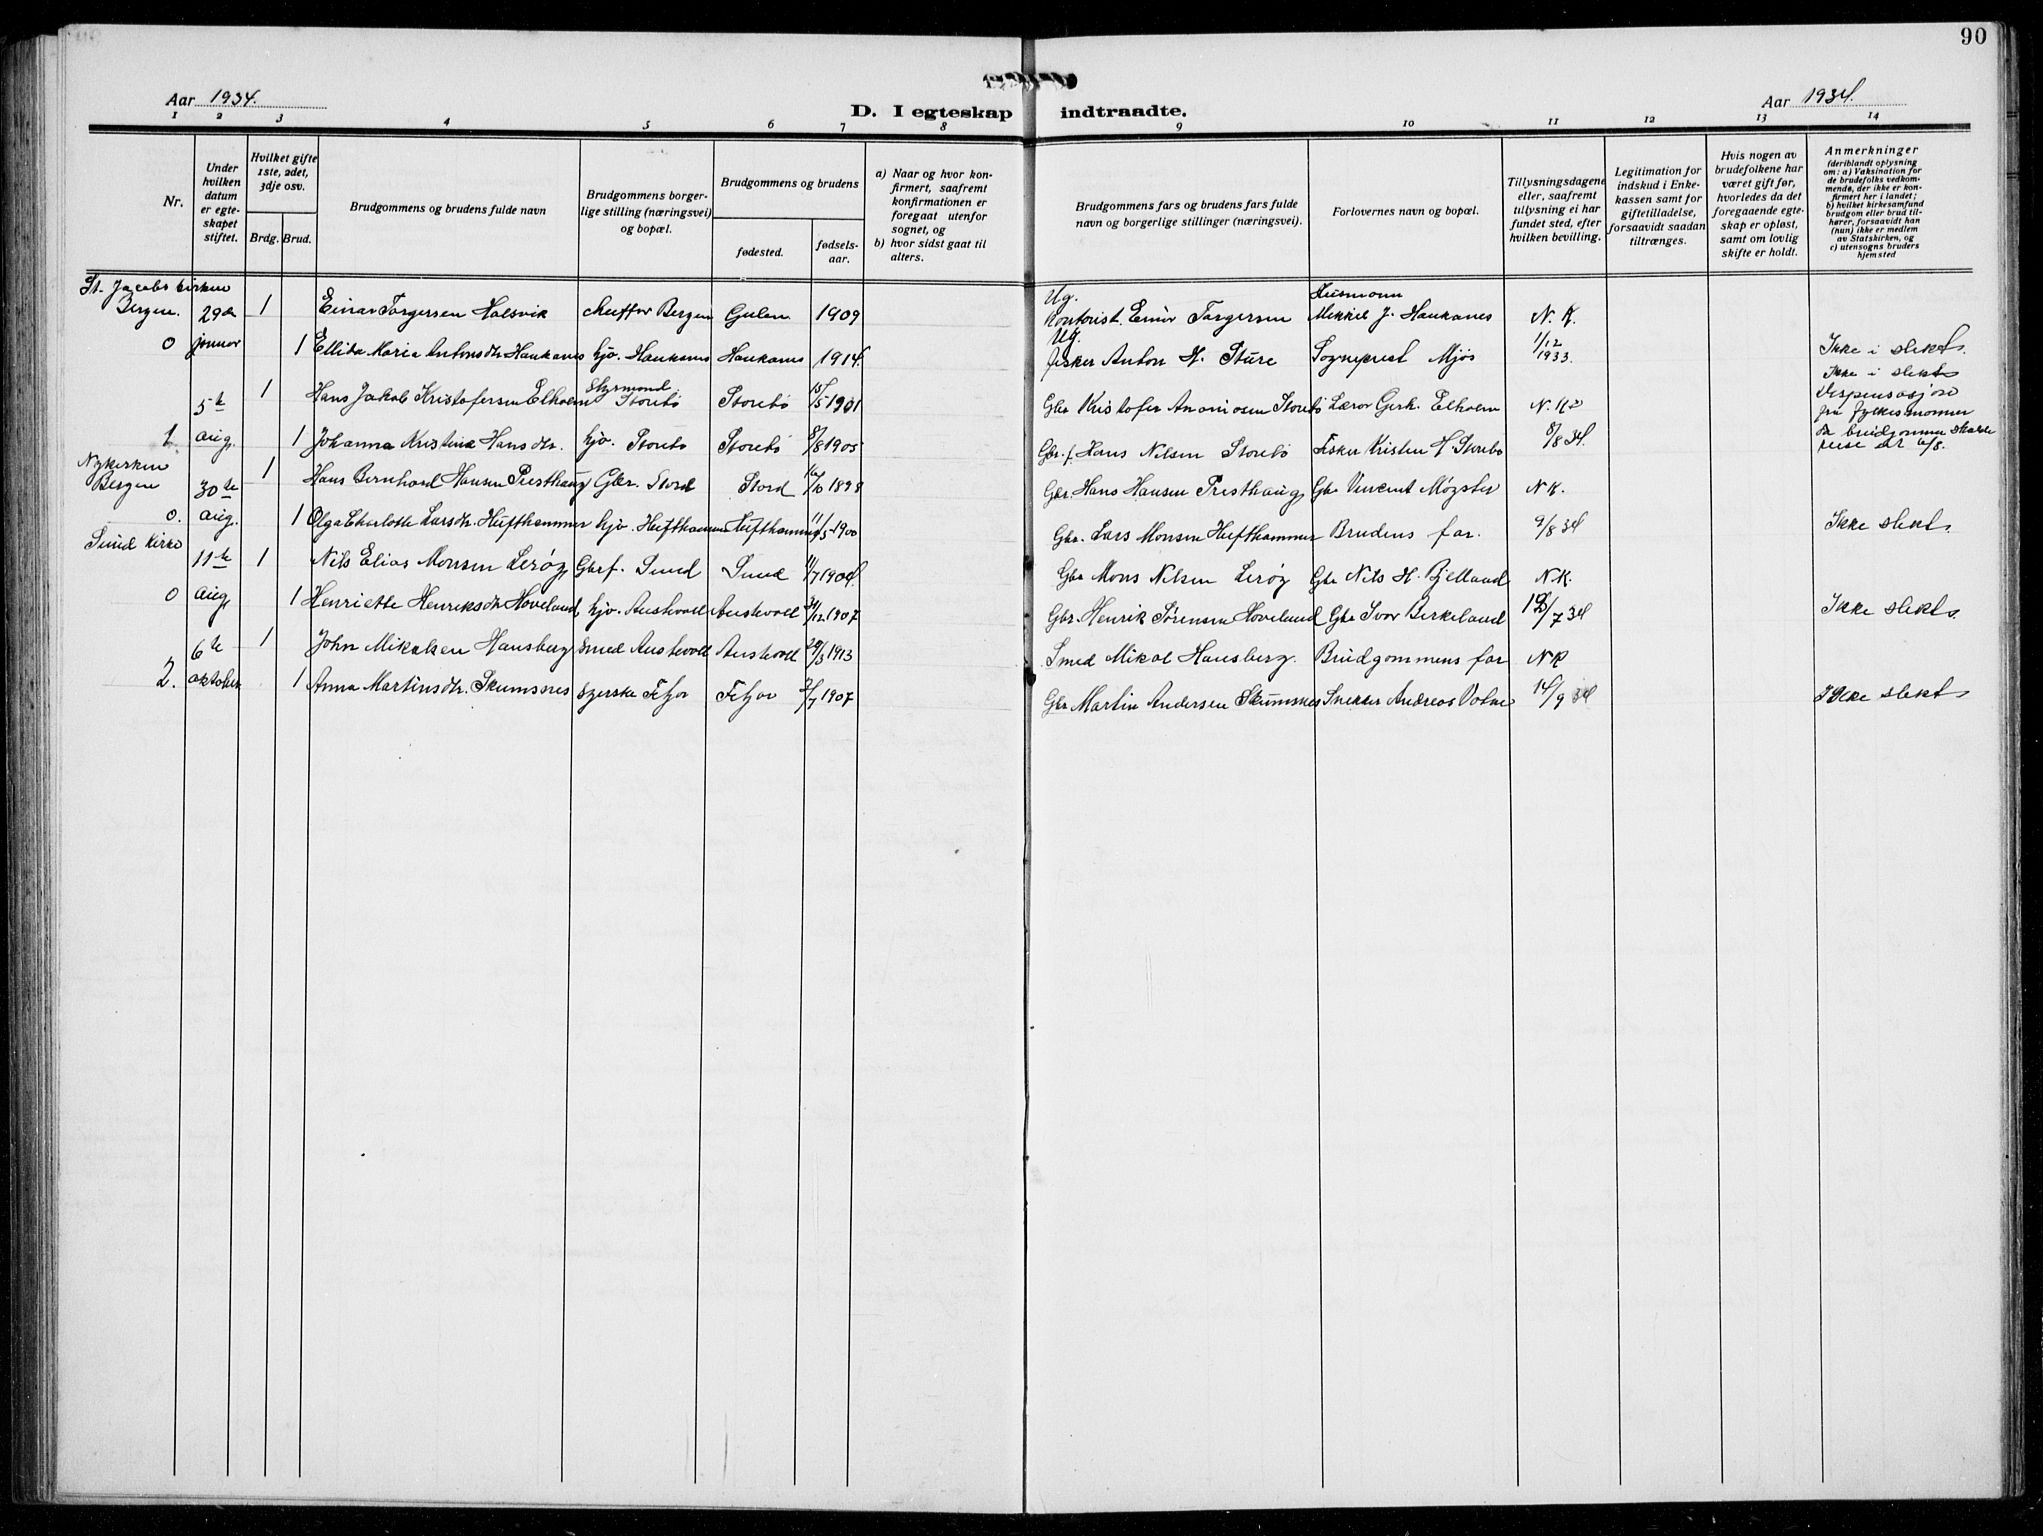 90
Aar 1934.
Aar 1934.
D. I egteskap indtraadte.
1 2 3 4 5 6 7 8 9 10 11 12 13 14
Nr.
Under hvilken datum er egteskapet stiftet.
Hvilket gifte 1ste, 2det, 3dje osv.
Brdg. Brud.
Brudgommens og brudens fulde navn
Brudgommens borgerlige stilling (næringsvei) og bopæl.
Brudgommens og brudens
fødested.
fødselsaar.
a) Naar og hvor konfirmert, saafremt konfirmationen er foregaat utenfor sognet, og
b) hvor sidst gaat til alters.
Brudgommens fars og brudens fars fulde navn og borgerlige stillinger (næringsvei).
Forlovernes navn og bopæl.
Tillysningsdagene eller, saafremt tillysning ei har fundet sted, efter hvilken bevilling.
Legitimation for indskud i Enkekassen samt for giftetilladelse, forsaavidt saadan tiltrænges.
Hvis nogen av brudefolkene har været gift før, hvorledes da det foregaaende egteskap er opløst, samt om lovlig skifte er holdt.
Anmerkninger
(deriblandt oplysning om: a) Vaksination for de brudefolks vedkommende, der ikke er konfirmert her i landet; b) hvilket kirkesamfund brudgom eller brud tilhører, forsaavidt han (hun) ikke er medlem av Statskirken, og c) utensogns bruders hjemsted
St. Jacobs kirken
Bergen. 29de 1 Einar Torgersen Halsvik Bergen Gulen 1909 Ug. Kontorist Einar Torgersen Husmann Mikkel J. Haukanes N. K.
0 januar 1 Ellida Maria Antonsdtr. Haukanes hjv. Haukanes Haukanes 1914. Ug. fisker Anton H. Sture Sogneprest Mjøs 1/12 1933. Ikke i slekt.
5te 1 Hans Jakob Kristofersen Elholm Styrmand Storebø Storebø 15/5 1901 Gbr Kristofer Storebø Lærer Gerh. Elholm N. K. Ikke i slekt
Dispensasjon
fra fylkesmannen
da brudgommen skulde
reise
1 aug. 1 Johanna Kristina Hansdtr. hjv. Storebø Storebø 8/8 1905 Gbr. f. Hans Nilsen Storebø Fisker Kristen H. Storebø 8/8 34.
Nykirken
Bergen 30te 1 Hans Bernhard Hansen Presthaug Gbr. Stord Stord 16/10 1898 Gbr. Hans Hansen Presthaug Gbr Vincent Møgster N K.
0. aug. 1 Olga Charlotte Larsdtr. Hufthammer hjv. Hufthammer Hufthammer 11/5 1900 Gbr. Lars Monsen Hufthammer Brudens far. 9/8 34 Ikke slekt.
Sund kirke
11te 1 Nils Elias Monsen Lerøy Gbrf. Sund Sund 11/7 1904 Gbr Mons Nilsen Lerøy Gbr Nils H. Bjelland N K.
0 aug. 1 Henriette Henriksdtr. Hoveland hjv. Austevoll Austevoll 31/12 1907 Gbr. Henrik Sørensen Hoveland Gbr Ivar Birkeland /7 34 Ikke slekt.
6te 1 John Mikalsen Hansberg Smed Austevoll Austevoll 29/3 1913 Smed Mikal Hansberg. Brudgommens far N K
2. oktober 1 Anna Martinsdtr. Skumsnes syerske Fitjar Fitjar 2/7 1907 Gbr Martin Andersen Skumsnes Snekker Andreas 14/9 34 Ikke slekt.